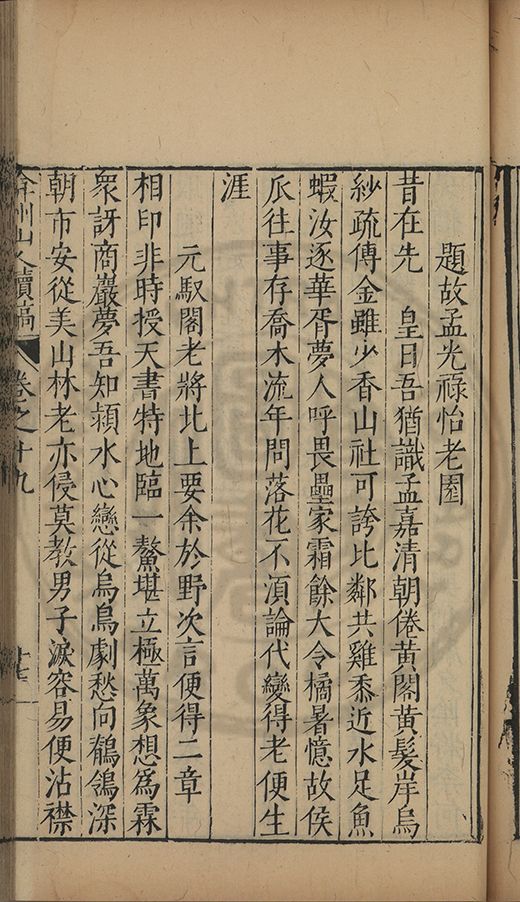 題故孟光祿怡老園
昔在先　皇日吾猶識孟嘉清朝倦黃閣黃髮岸烏
紗疏傳金雖少香山社可誇比鄰共雞黍近水足魚
蝦汝逐華胥夢人呼畏壘家霜餘大令橘暑憶故侯
瓜往事存喬木流年問落花不須論代變得老便生
涯
元馭閣老將北上要余於野次言便得二章
相印非時授天書特地臨一鰲堪立極萬象想爲霖
衆訝商巖夢吾知潁水心戀從烏鳥劇愁向鶺鴒深
朝市安從美山林老亦侵莫教男子淚容易便沾襟
弇州山人續稿　卷之十九